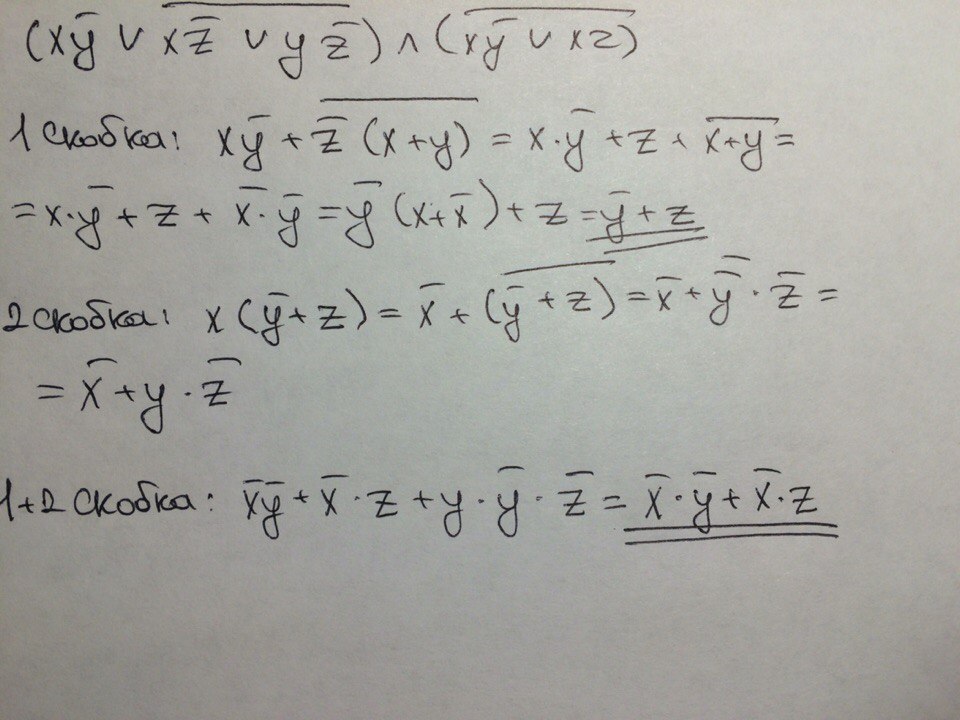 (xȳ ∨ x̅z̅̅ ̅∨̅ ̅y̅z̅̅) ∧ (x̅ȳ̅ ̅∨̅ ̅x̅z̅)
1 скобка: xȳ + z̅̅ ̅(̅x̅+̅y̅)̅ = x·ȳ + z + x̅+̅y̅ =
= x·ȳ + z + x̄·ȳ = ȳ (x+x̄) + z = ȳ + z
2 скобка: x (ȳ+z) = x̄ + (ȳ̅ ̅+̅ ̅z̅) = x̄ + ȳ̅ · z̄ =
= x̄ + y · z̄
1+2 скобка: x̄ȳ + x̄·z + y·ȳ·z̄ = x̄·ȳ + x̄·z